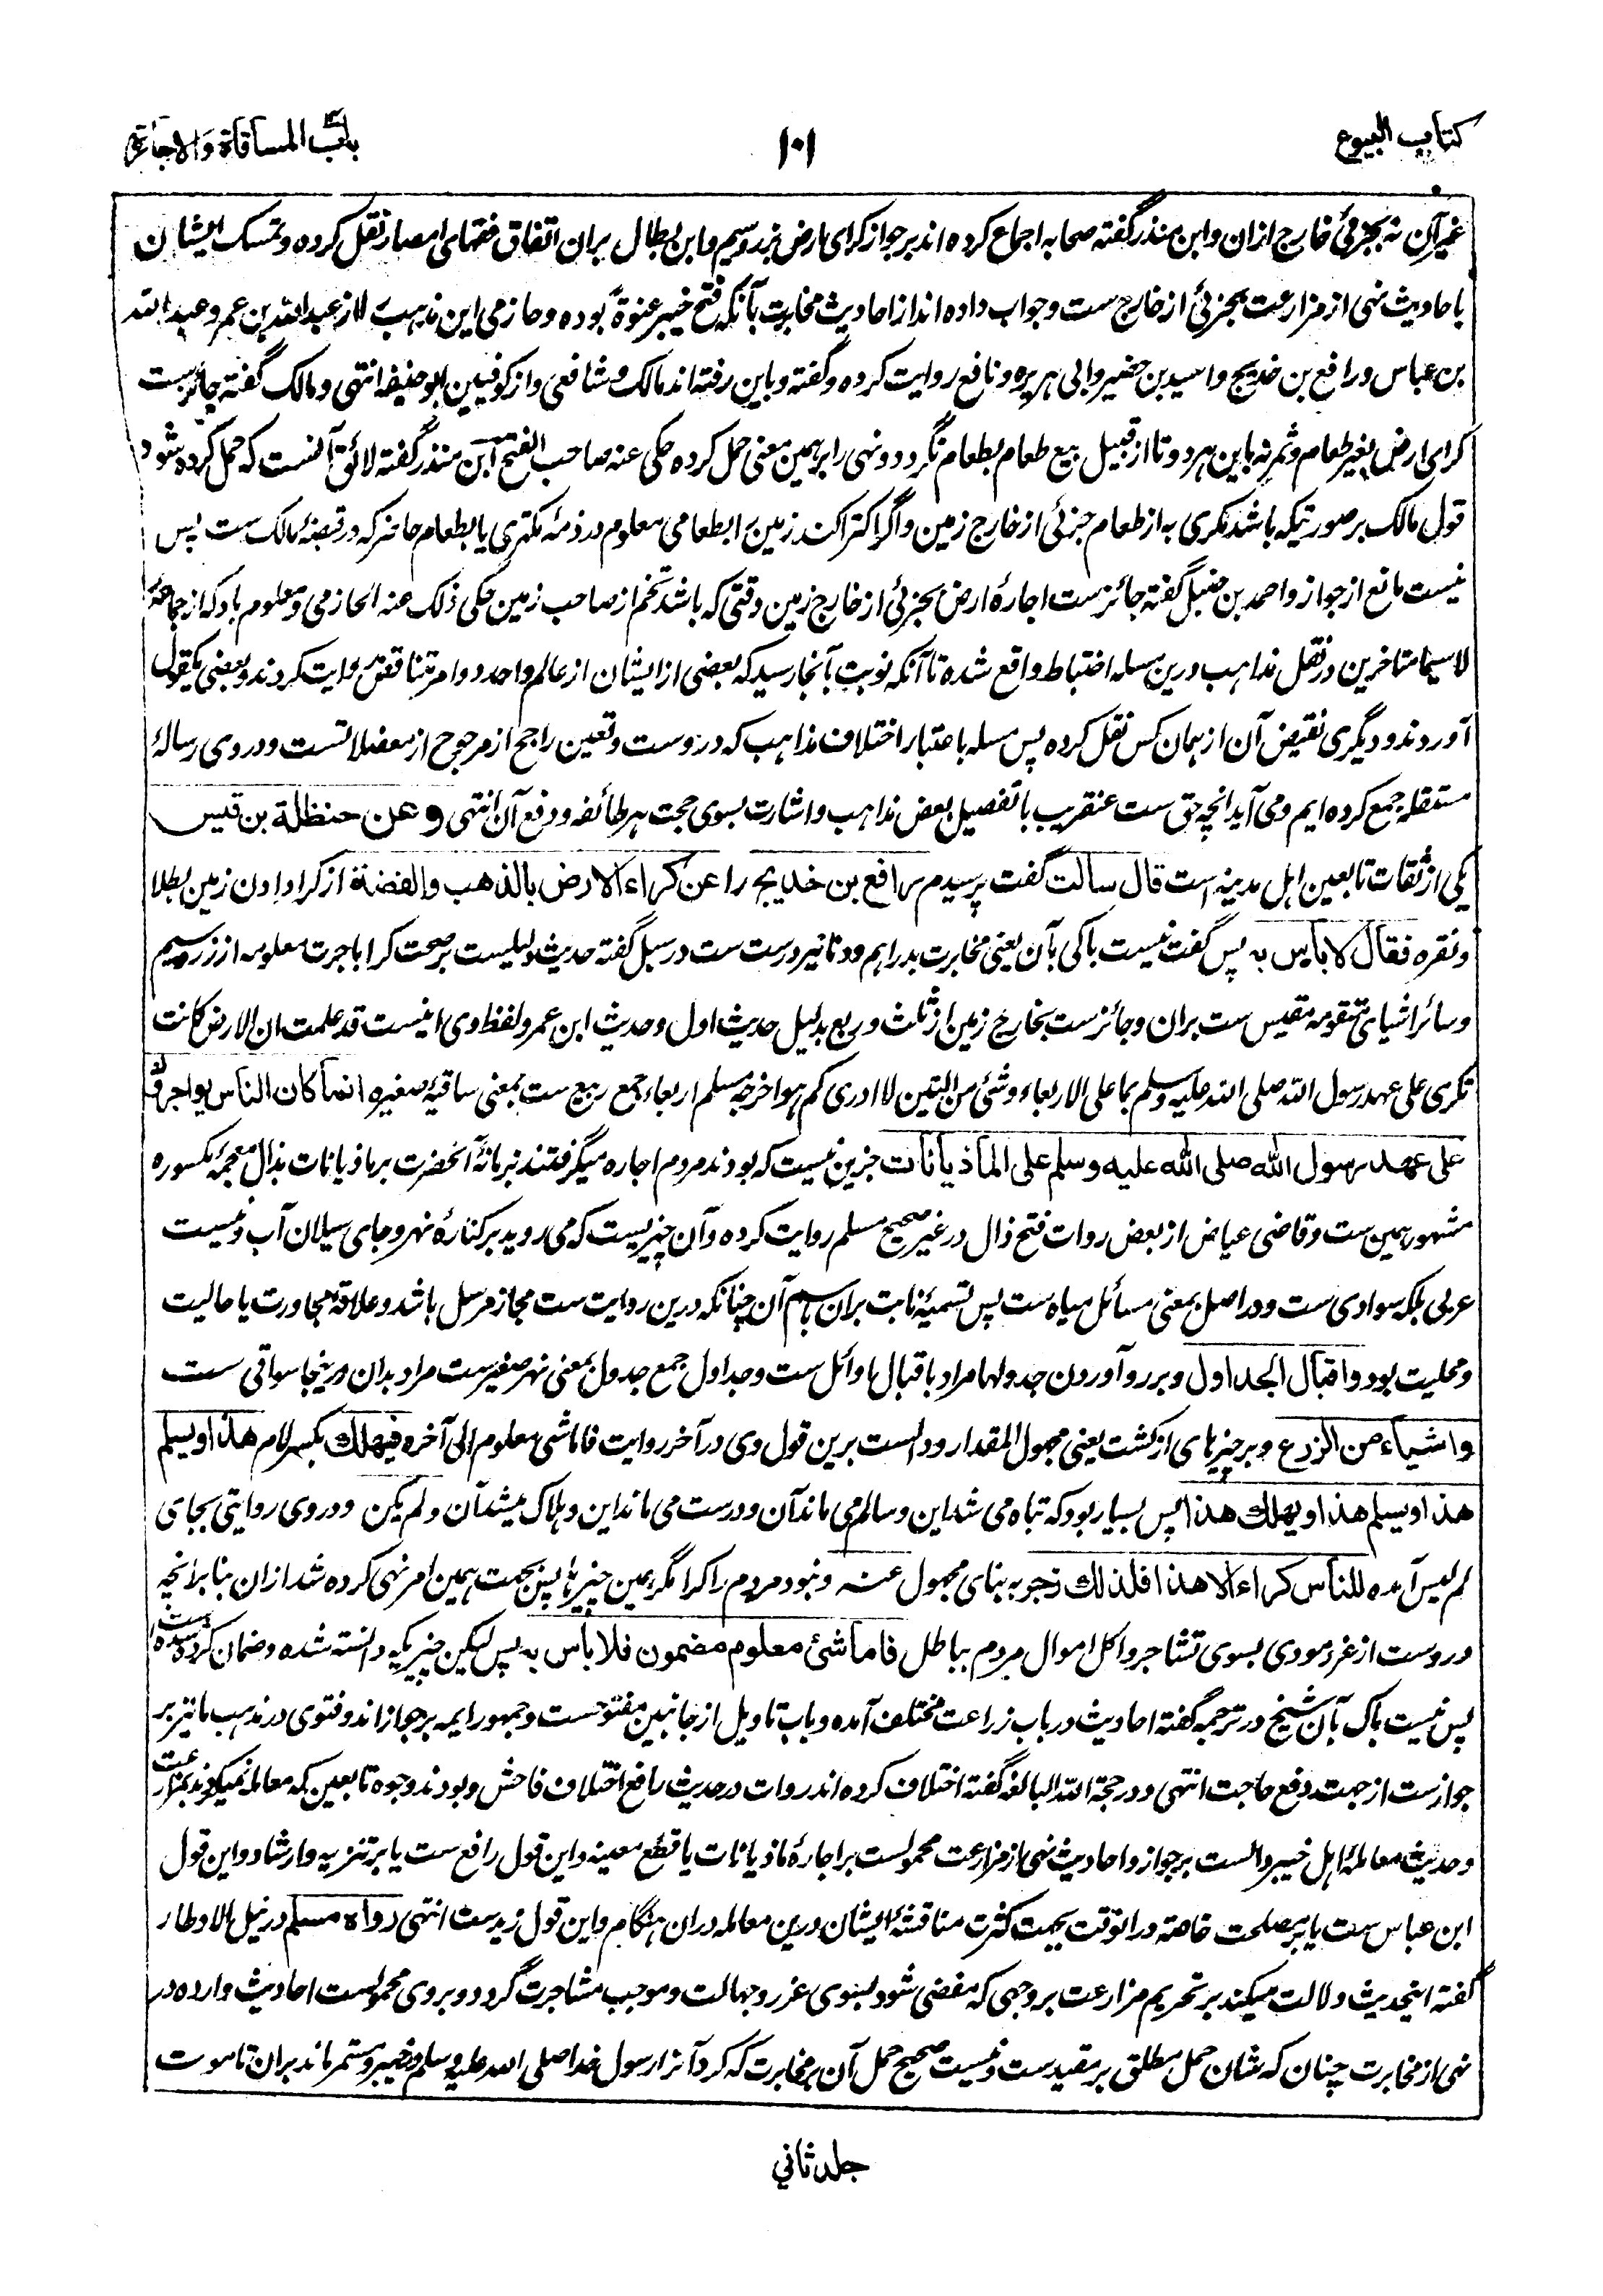 کتاب البیوع
۱۰۱
باب المساقاة والاجارة
غیر آن نه بجزئی خارج ازان وابن منذر گفته صحابه اجماع کرده اند بر جواز کرای ارض بزر وسیم وابن بطال بران اتفاق فقهای امصار نقل کرده وتمسک ایشان
باحادیث نهی از مزارعت بجزئی از خارج ست وجواب داده اند از احادیث مخابرت بآنکه فتح خیبر عنوة بوده وحازمی این مذهب را از عبدالله بن عمر وعبدالله
بن عباس ورافع بن خدیج واسید بن حضیر وابی هریره ونافع روایت کرده وگفته وباین رفته اند مالک وشافعی واز کوفیین ابوحنیفه انتهی ومالک گفته جائزست
کرای ارض بغیر طعام وثمر نه باین هر دو تا از قبیل بیع طعام بطعام نگردد ونهی را برهمین معنی حمل کرده حکی عنه صاحب الفتح ابن منذر گفته لائق آنست که حمل کرده شود
قول مالک بر صورتیکه باشد مکری به از طعام جزئی از خارج زمین واگر اکترا کند زمین را بطعامی معلوم در ذمهٔ مکتری یا بطعام حاضر که در قبضهٔ مالک ست پس
نیست مانع از جواز واحمد بن حنبل گفته جائزست اجارهٔ ارض بجزئی از خارج زمین وقتی که باشد تخم از صاحب زمین حکی ذلک عنه الحازمی ومعلوم باد که از جماعهٔ
لاسیما متاخرین در نقل مذاهب درین مسله اختباط واقع شده تا آنکه نوبت بآنجا رسید که بعضی از ایشان از عالم واحد دو امر متناقض روایت کردند وبعضی یکقول
آوردند ودیگری نقیض آن از همان کس نقل کرده پس مسله باعتبار اختلاف مذاهب که دروست وتعین راجح از مرجوح از معضلاتست ودر وی رسالهٔ
مستقله جمع کرده ایم ومی آید انچه حق ست عنقریب باتفصیل بعض مذاهب واشارت بسوی حجت هر طائفه ودفع آن انتهی وعن حنظلة بن قیس
یکی از ثقات تابعین اهل مدینه است قال سألت گفت پرسیدم رافع بن خدیج را عن کراء الارض بالذهب والفضة از کرا دادن زمین بطلا
ونقره فقال لا بأس به پس گفت نیست باکی بآن یعنی مخابرت بدراهم ودنانیر درست ست در سبل گفته حدیث دلیلست بر صحت کرا باجرت معلومه از زر وسیم
وسائر اشیای متقومه مقیس ست بران وجائزست بخارج زمین از ثلث وربع بدلیل حدیث اول وحدیث ابن عمر ولفظ وی اینست قد علمت ان الارض کانت
تکری علی عهد رسول الله صلی الله علیه وسلم بما علی الاربعاء وشئ من التبن لا ادری کم هو اخرجه مسلم اربعاء جمع ربیع ست بمعنی ساقیهٔ صغیره انما کان الناس یواجرون
علی عهد رسول الله صلی الله علیه وسلم علی الماذیانات جزین نیست که بودند مردم اجاره میگرفتند بزمانهٔ آنحضرت بر ماذیانات بذال معجمهٔ مکسوره
مشهور همین ست وقاضی عیاض از بعض روات فتح ذال در غیر صحیح مسلم روایت کرده وآن چیزیست که می روید بر کنارهٔ نهر وجای سیلان آب ونیست
عربی بلکه سوادی ست ودر اصل بمعنی مسائل میاه ست پس تسمیهٔ نابت بران باسم آن چنانکه درین روایت ست مجاز مرسل باشد وعلاقه مجاورت یا حالیت
ومحلیت بود واقبال الجداول وبر رو آوردن جدولها مراد باقبال اوائل ست وجداول جمع جدول بمعنی نهر صغیرست مراد بدان درینجا سواقی ست
واشیاء من الزرع وبر چیزهای از کشت یعنی مجهول المقدار ودالست برین قول وی در آخر روایت فاما شئ معلوم الی آخره فیهلک بکسر لام هذا ویسلم
هذا ویسلم هذا ویهلک هذا پس بسیار بود که تباه می شد این وسالم می ماند آن ودرست می ماند این وهلاک میشد آن ولم یکن ودر وی روایتی بجای
لم لیس آمده للناس کراء الا هذا فلذلک زجر به بنای مجهول عنه ونبود مردم را کرا مگر همین چیزها پس بجهت همین امر نهی کرده شد ازان بنا برانچه
دروست از غرر مودی بسوی تشاجر واکل اموال مردم بباطل فاما شئ معلوم مضمون فلا بأس به پس لیکن چیزیکه دانسته شده وضمان کرده شده است
پس نیست باک بآن شیخ در ترجمه گفته احادیث در باب زراعت مختلف آمده وباب تاویل از جانبین مفتوحست وجمهور ایمه بر جواز اند وفتوی در مذهب ما نیز بر
جوازست از جهت دفع حاجت انتهی ودر حجة الله البالغه گفته اختلاف کرده اند روات در حدیث رافع اختلاف فاحش وبودند وجوه تابعین که معامله میکردند بمزارعت
وحدیث معاملهٔ اهل خیبر دالست بر جواز واحادیث نهی از مزارعت محمولست بر اجارهٔ ماذیانات یا قطع معینه واین قول رافع ست یا بر تنزیه وارشاد واین قول
ابن عباس ست یا بر مصلحت خاصه درانوقت بجهت کثرت مناقشهٔ ایشان درین معامله دران هنگام واین قول زیدست انتهی رواه مسلم در نیل الاوطار
گفته اینحدیث دلالت میکند بر تحریم مزارعت بر وجهی که مفضی شود بسوی غرر وجهالت وموجب مشاجرت گردد وبر وی محمولست احادیث وارده در
نهی از مخابرت چنان که شان حمل مطلق بر مقیدست ونیست صحیح حمل آن بر مخابرت که کرد آنرا رسول خدا صلی الله علیه وسلم در خیبر ومستمر ماند بران تا موت
جلد ثانی